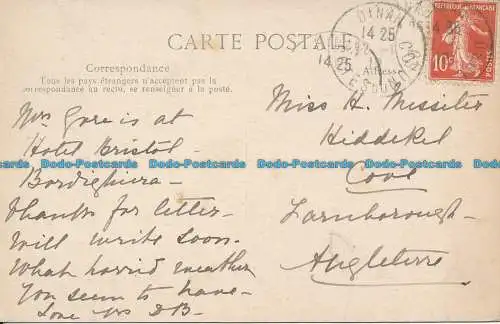 CARTE POSTALE
Correspondance
Tous les pays étrangers n'acceptent pas la
correspondance au recto, se renseigner à la poste.
Adresse
RÉPUBLIQUE FRANÇAISE
10c
POSTES
DINAN
14 25
14 25
Mrs Gore is at
Hotel Bristol
Bordighiera -
Thanks for letter -
Will write soon.
What horrid weather
You seem to have -
Love yrs DB -
Miss H. Messiter
Hiddekel
Cove
Farnborough -
Angleterre
Dodo-Postcards Dodo-Postcards Dodo-Postcards Dodo-Postcards Dodo-Postcards